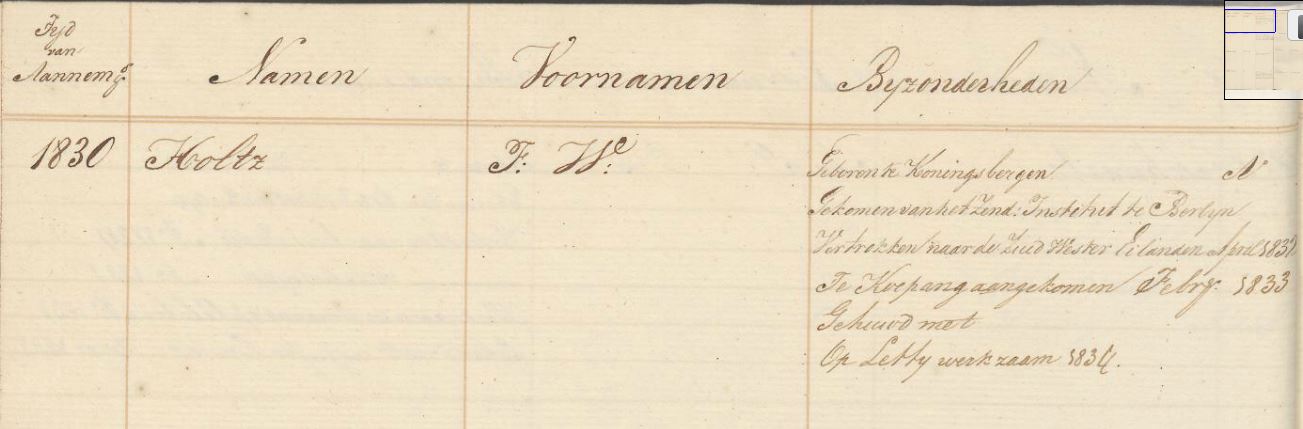 Tyd
van
Aannemg.
Namen
Voornamen
Byzonderheden
1830
Holtz
F: We.
Geboren te Koningsbergen N
Gekomen van het Zend: Institut te Berlyn
Vertrekken naar de Zuid Wester Eilanden April 1832
Te Koepang aangekomen Febry. 1833
Gehuwd met
Op Letty werkzaam 1834.